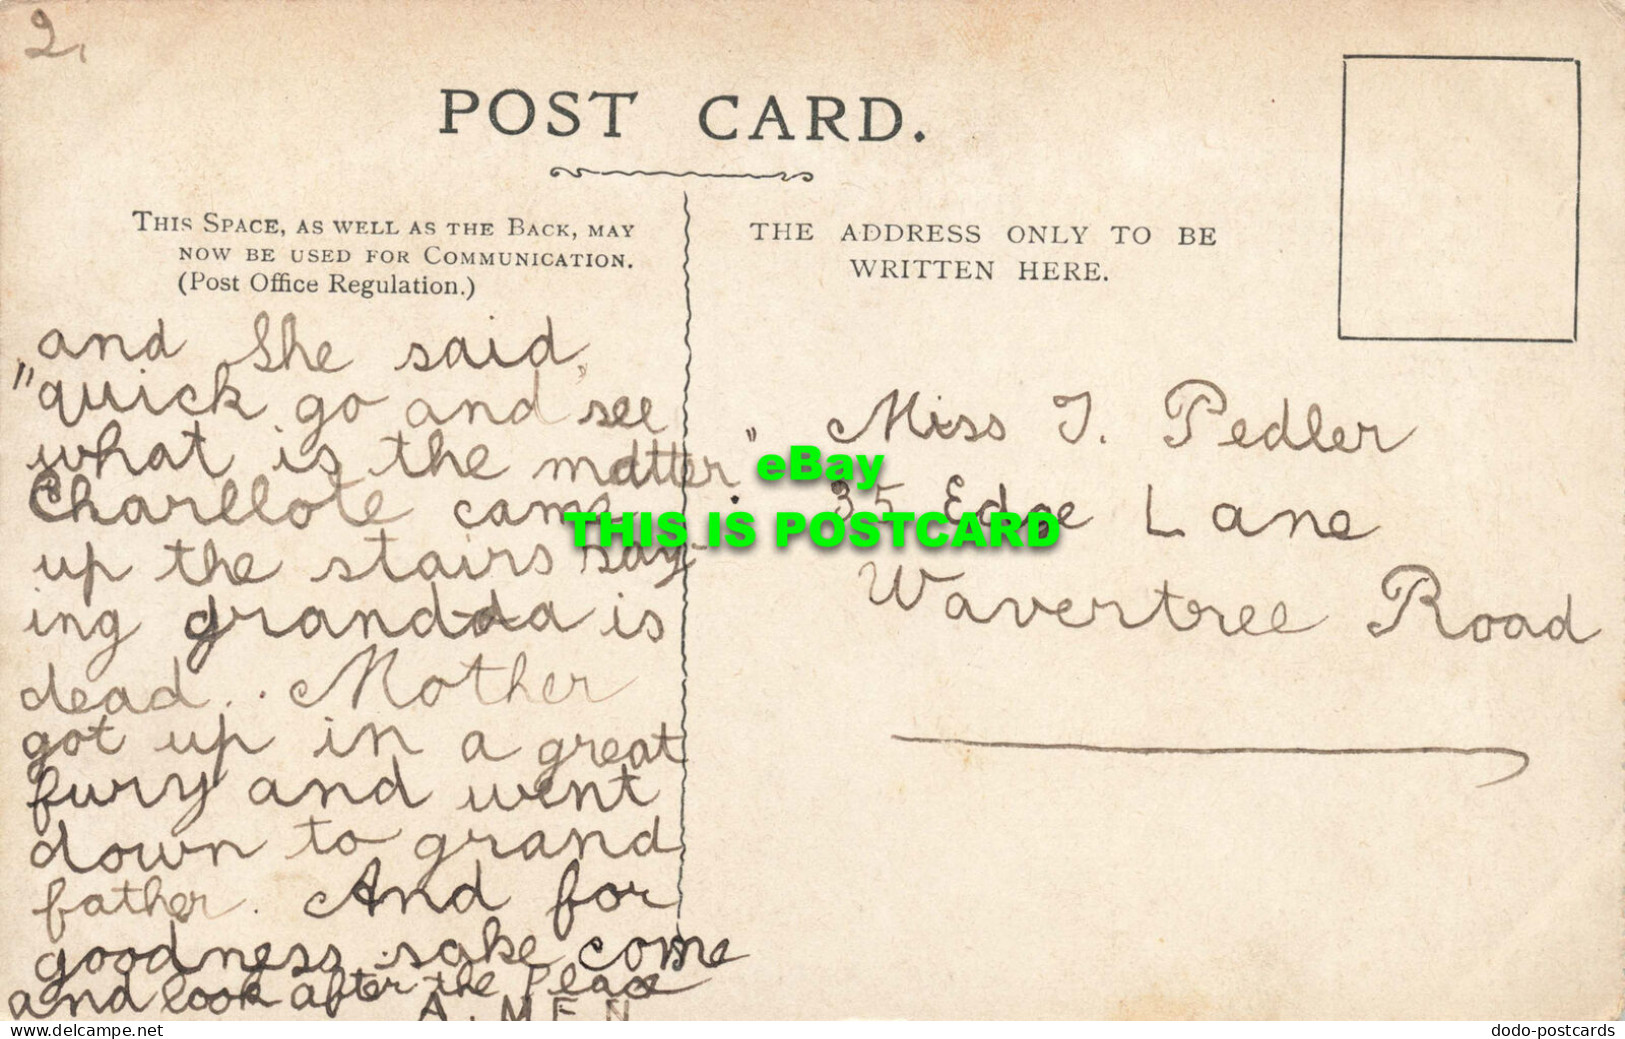 2,
POST CARD.
THIS SPACE, AS WELL AS THE BACK, MAY
NOW BE USED FOR COMMUNICATION.
(Post Office Regulation.)
THE ADDRESS ONLY TO BE
WRITTEN HERE.
and She said,
"quick go and see
what is the matter".
Charllote came
up the stairs say-
ing grandda is
dead. . Mother
got up in a great
fury and went
down to grand
father. And for
goodness sake come
and look after the Place
A. MEN
Miss J. Pedler
35 Edge Lane
Wavertree Road
eBay
THIS IS POSTCARD
www.delcampe.net
dodo-postcards